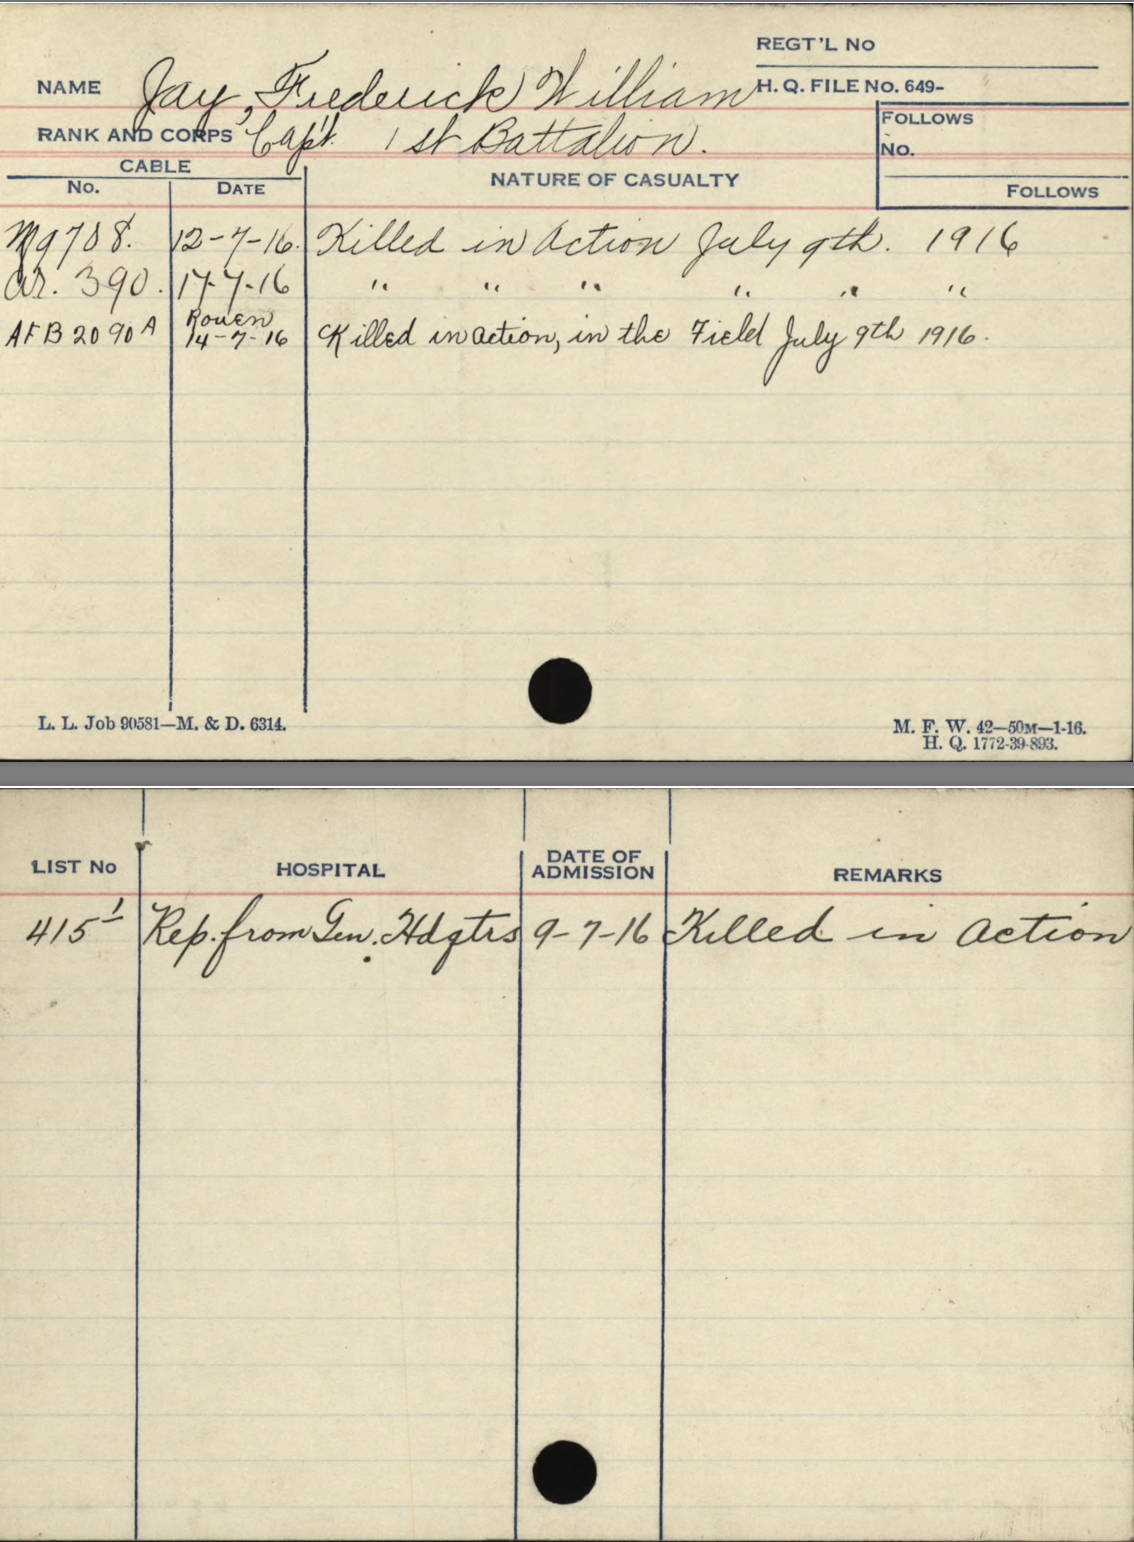 REGT'L No
NAME Jay, Frederick William H. Q. FILE No. 649-
RANK AND CORPS Capt. 1st Battalion.
FOLLOWS
No.
CABLE
No. DATE NATURE OF CASUALTY FOLLOWS
M9708. 12-7-16. Killed in Action July 9th. 1916
ar. 390. 17-7-16 " " " " " "
AFB 2090A Rouen 14-7-16 Killed in action, in the Field July 9th 1916.
L. L. Job 90581—M. & D. 6314.
M. F. W. 42—50M—1-16.
H. Q. 1772-39-893.
LIST No HOSPITAL DATE OF ADMISSION REMARKS
415 1 Rep. from Gen. Hdqtrs 9-7-16 Killed in Action